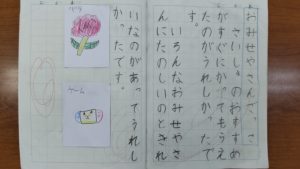 おみせやさんごっこ
さいしょのおすすめ
がすぐにかってもらえ
たのがうれしかったで
す。
いろんなおみせやさ
んにたのしいのときれ
いなのがあってうれし
かったです。
ゲーム